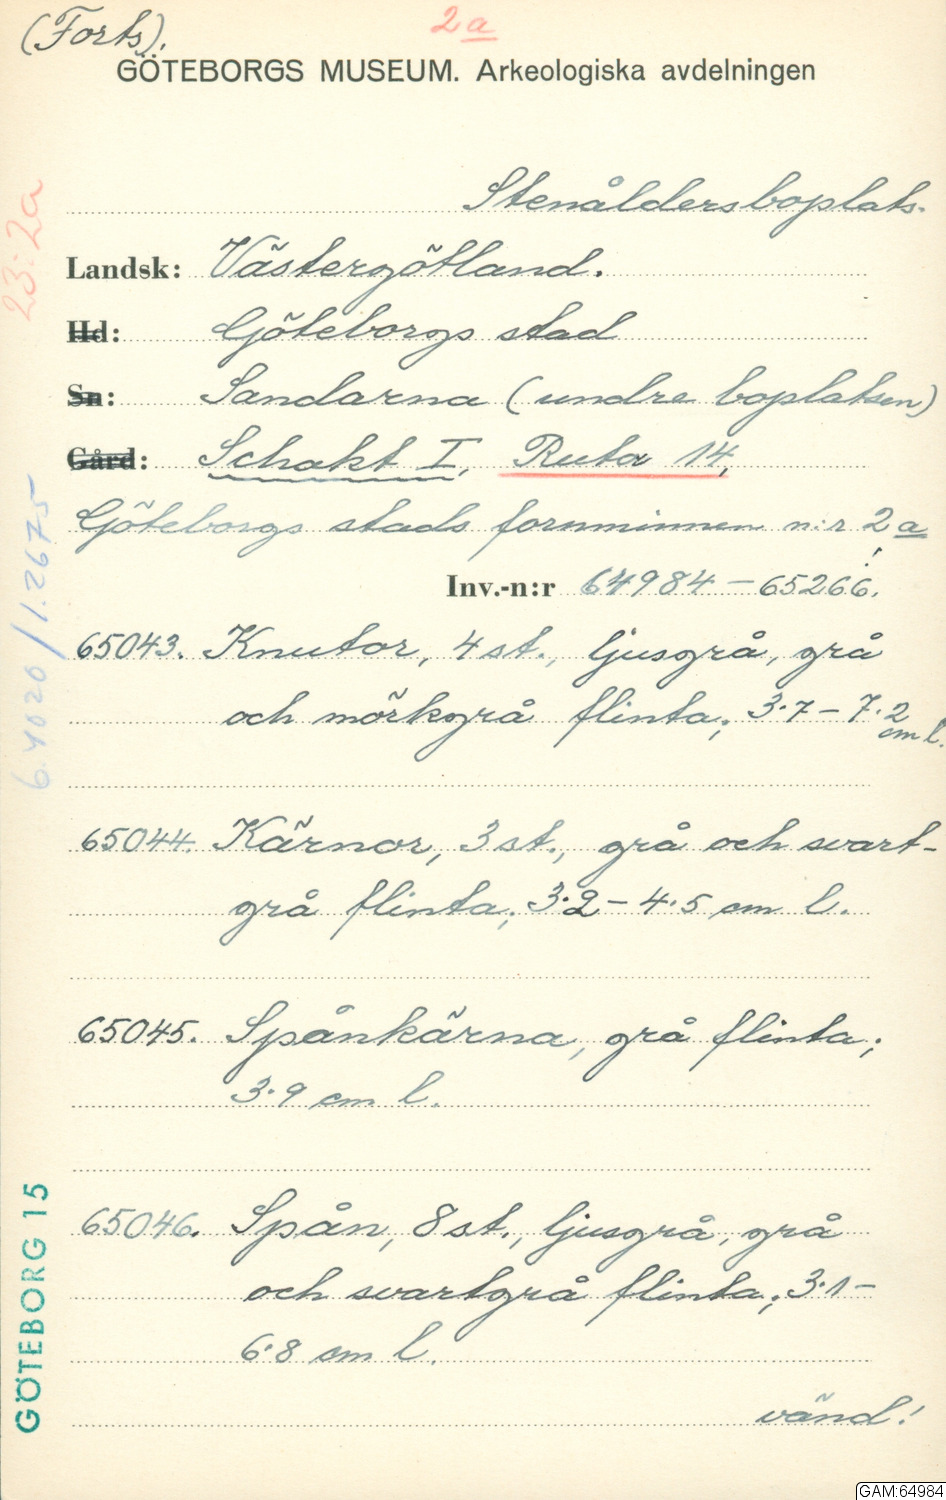 (Forts).
2a
GÖTEBORGS MUSEUM. Arkeologiska avdelningen
Stenåldersboplats.
Landsk: Västergötland.
Hd: Göteborgs stad
Sn: Sandarna (undre boplatsen)
Gård: Schakt I, Ruta 14,
Göteborgs stads fornminnen n:r 2a
Inv.-n:r 64984 – 65266.
65043. Knutor, 4 st., ljusgrå, grå
och mörkgrå flinta; 3.7 – 7.2
cm l.
65044. Kärnor, 3 st., grå och svart-
grå flinta; 3.2 – 4.5 cm l.
65045. Spånkärna, grå flinta;
3.9 cm l.
65046. Spån, 8 st., ljusgrå, grå
och svartgrå flinta; 3.1 –
6.8 cm l.
vänd!
23:2a
6.4020/1.2675
GÖTEBORG 15
GAM:64984